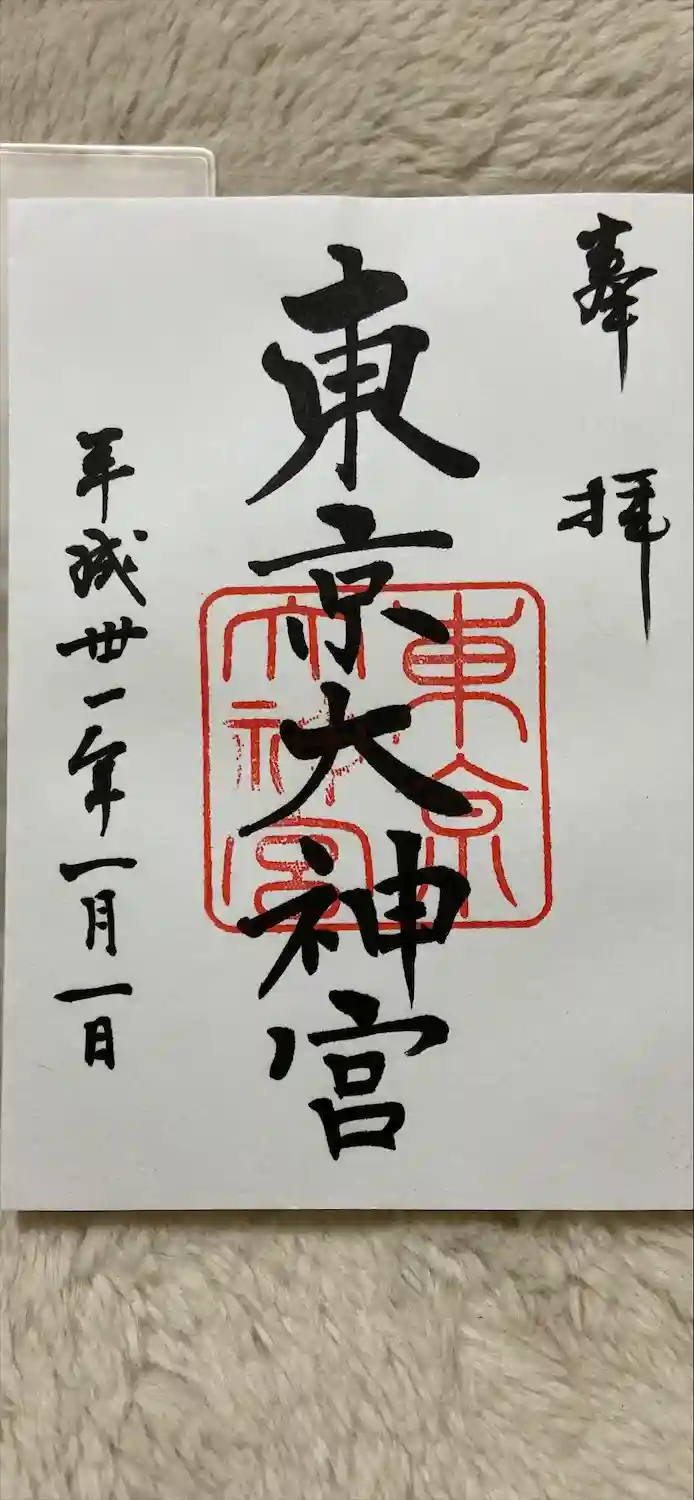 奉拝
東京大神宮
東京
大神宮
平成卅一年一月一日